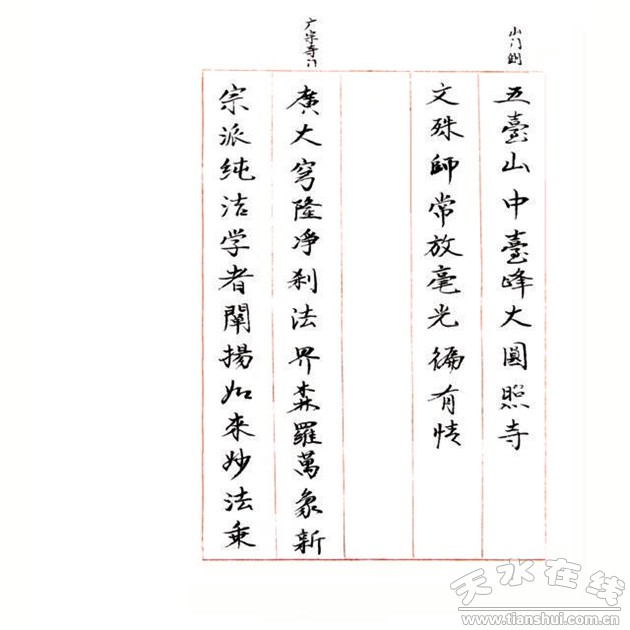 山门侧
五臺山中臺峰大圓照寺
文殊師常放毫光徧有情
广宗寺门
廣大穹隆净刹法界森羅萬象新
宗派纯洁学者闡揚如來妙法乗
天水在线
www.tianshui.com.cn